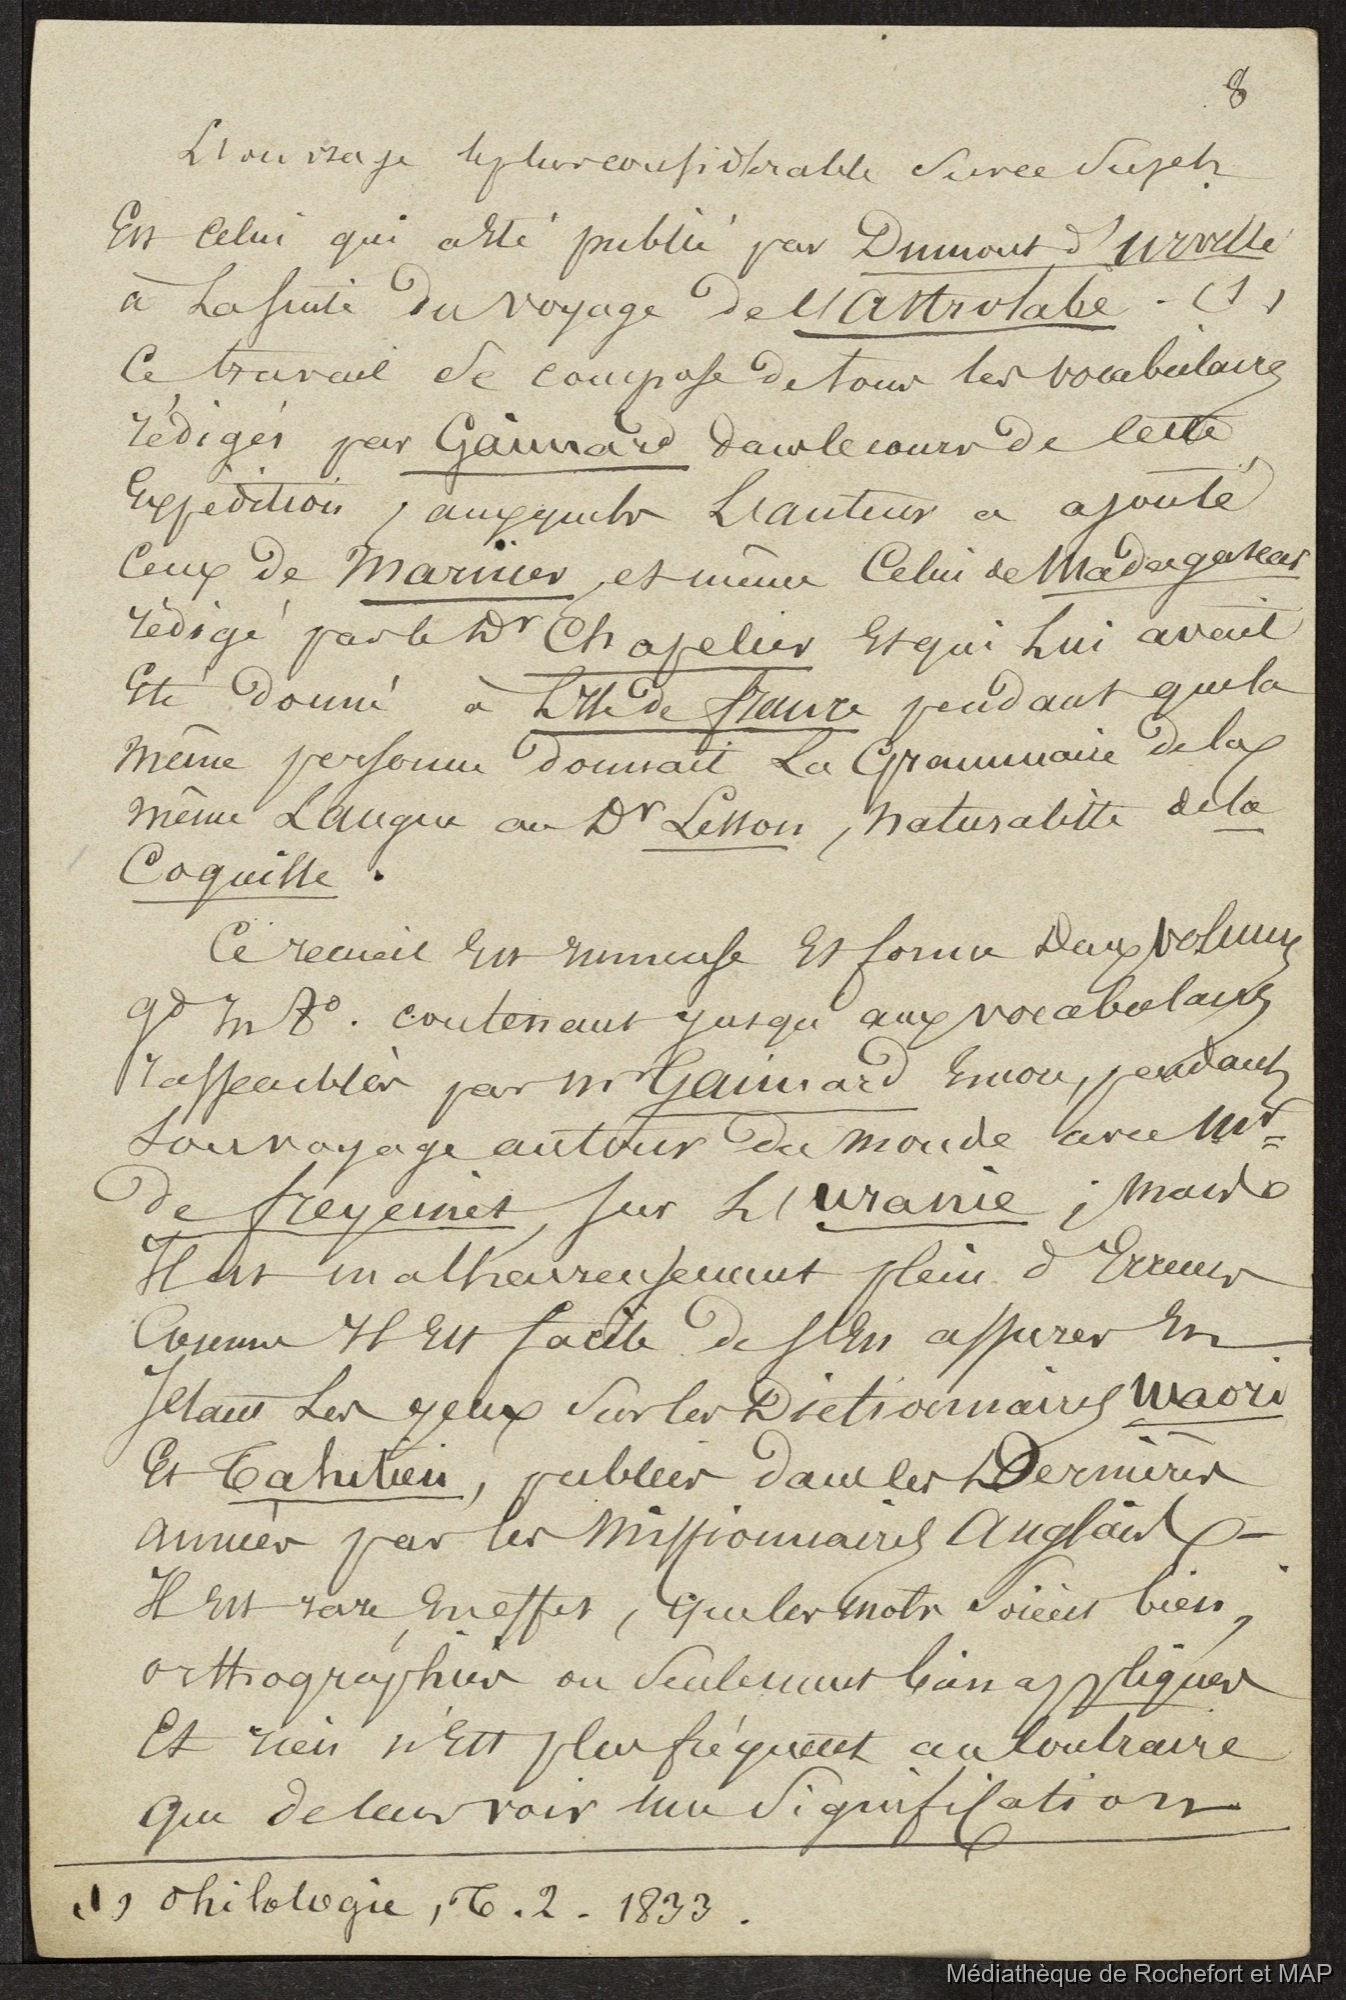 8
L'ouvrage le plus considérable sur ce sujet
Est celui qui a Eté publié par Dumont d'Urville
à La suite du voyage de l'Astrolabe. (1)
Ce travail se compose de tous les vocabulaires
rédigés par Gaimard dans le cours de cette
Expédition, auxquels L'auteur a ajouté
ceux de Mariner, et même Celui de Madagascar
rédigé par le Dr Chapelier Et qui Lui avait
Eté donné à L'Ile de france pendant que la
même personne donnait La Grammaire de la
même Langue au Dr Lesson, naturaliste de la
Coquille.
Ce recueil Est immense Et forme Deux volumes
gd In 8°. contenant jusqu'aux vocabulaires
rassemblés par mr Gaimard Encore, pendant
son voyage autour du monde avec Mr
de freycinet, sur L'uranie ; mais
Il est malheureusement plein d'Erreurs
Comme Il Est facile de s'En assurer En
Jetant Les yeux sur les Dictionnaires Maori
Et Tahitien, publiés dans les Dernières
années par les Missionnaires Anglais –
Il Est rare, En effet, que les mots soient bien
orthographiés ou seulement bien appliqués
Et rien n'Est plus fréquent au Contraire
que de leur voir une signification
(1) Philologie, T. 2. 1833.
Médiathèque de Rochefort et MAP